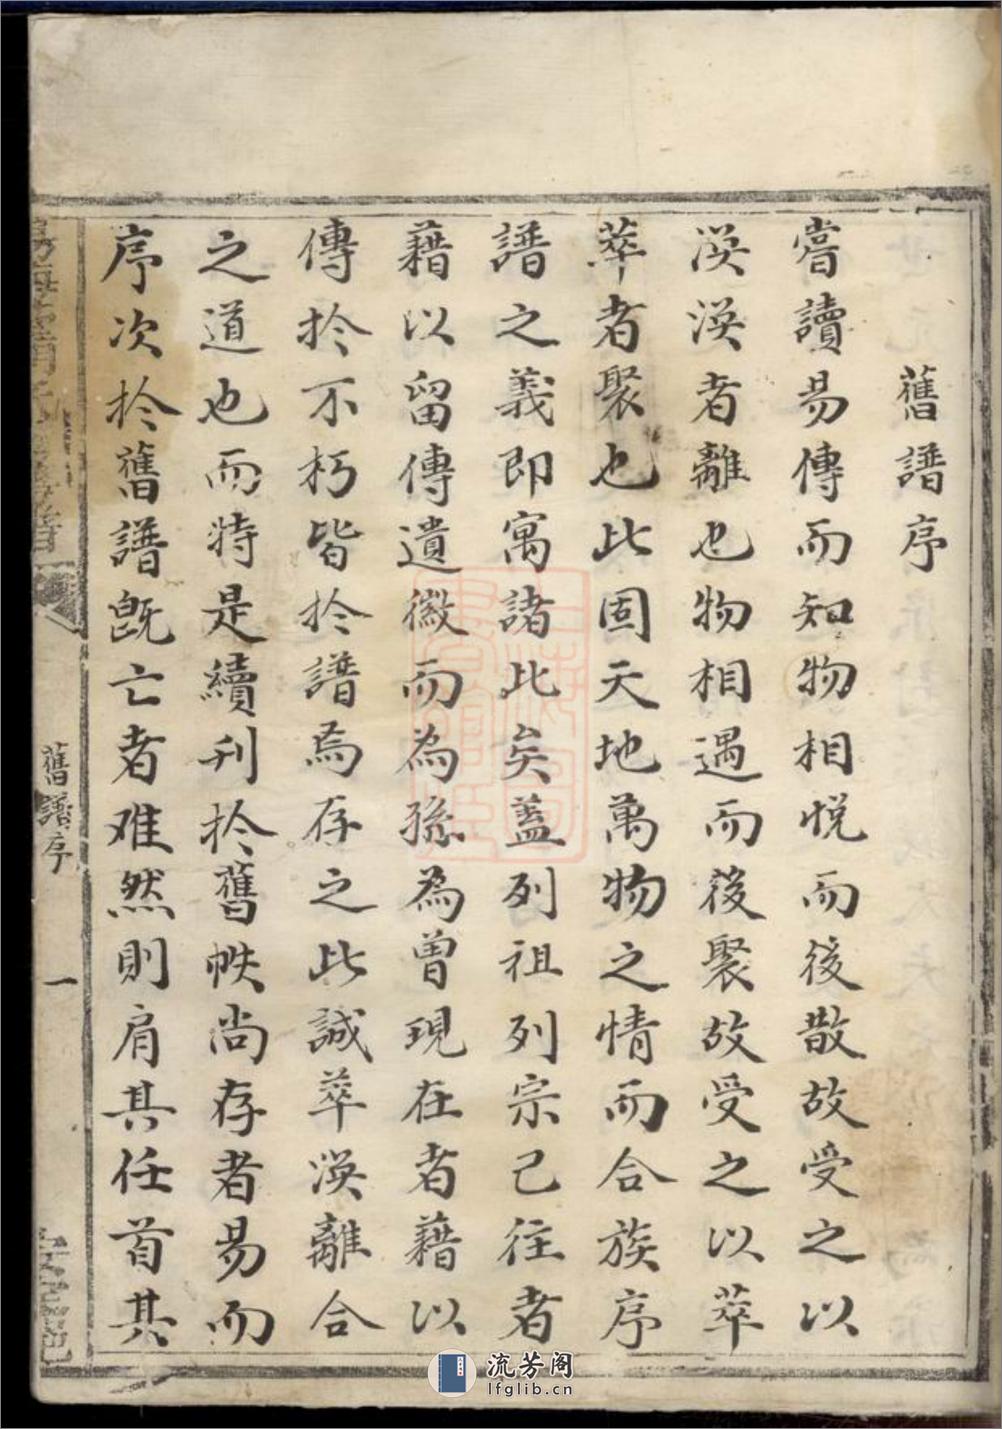 舊譜序
嘗讀易傳而知物相悅而後散故受之以
渙渙者離也物相遇而後聚故受之以萃
萃者聚也此固天地萬物之情而合族序
譜之義即寓諸此矣蓋列祖列宗已往者
藉以留傳遺徽而為孫為曾現在者藉以
傳扵不朽皆扵譜焉存之此誠萃渙離合
之道也而特是續刋扵舊帙尚存者易而
序次扵舊譜旣亡者难然則肩其任首其
舊譜序
一
流芳阁
lfglib.cn